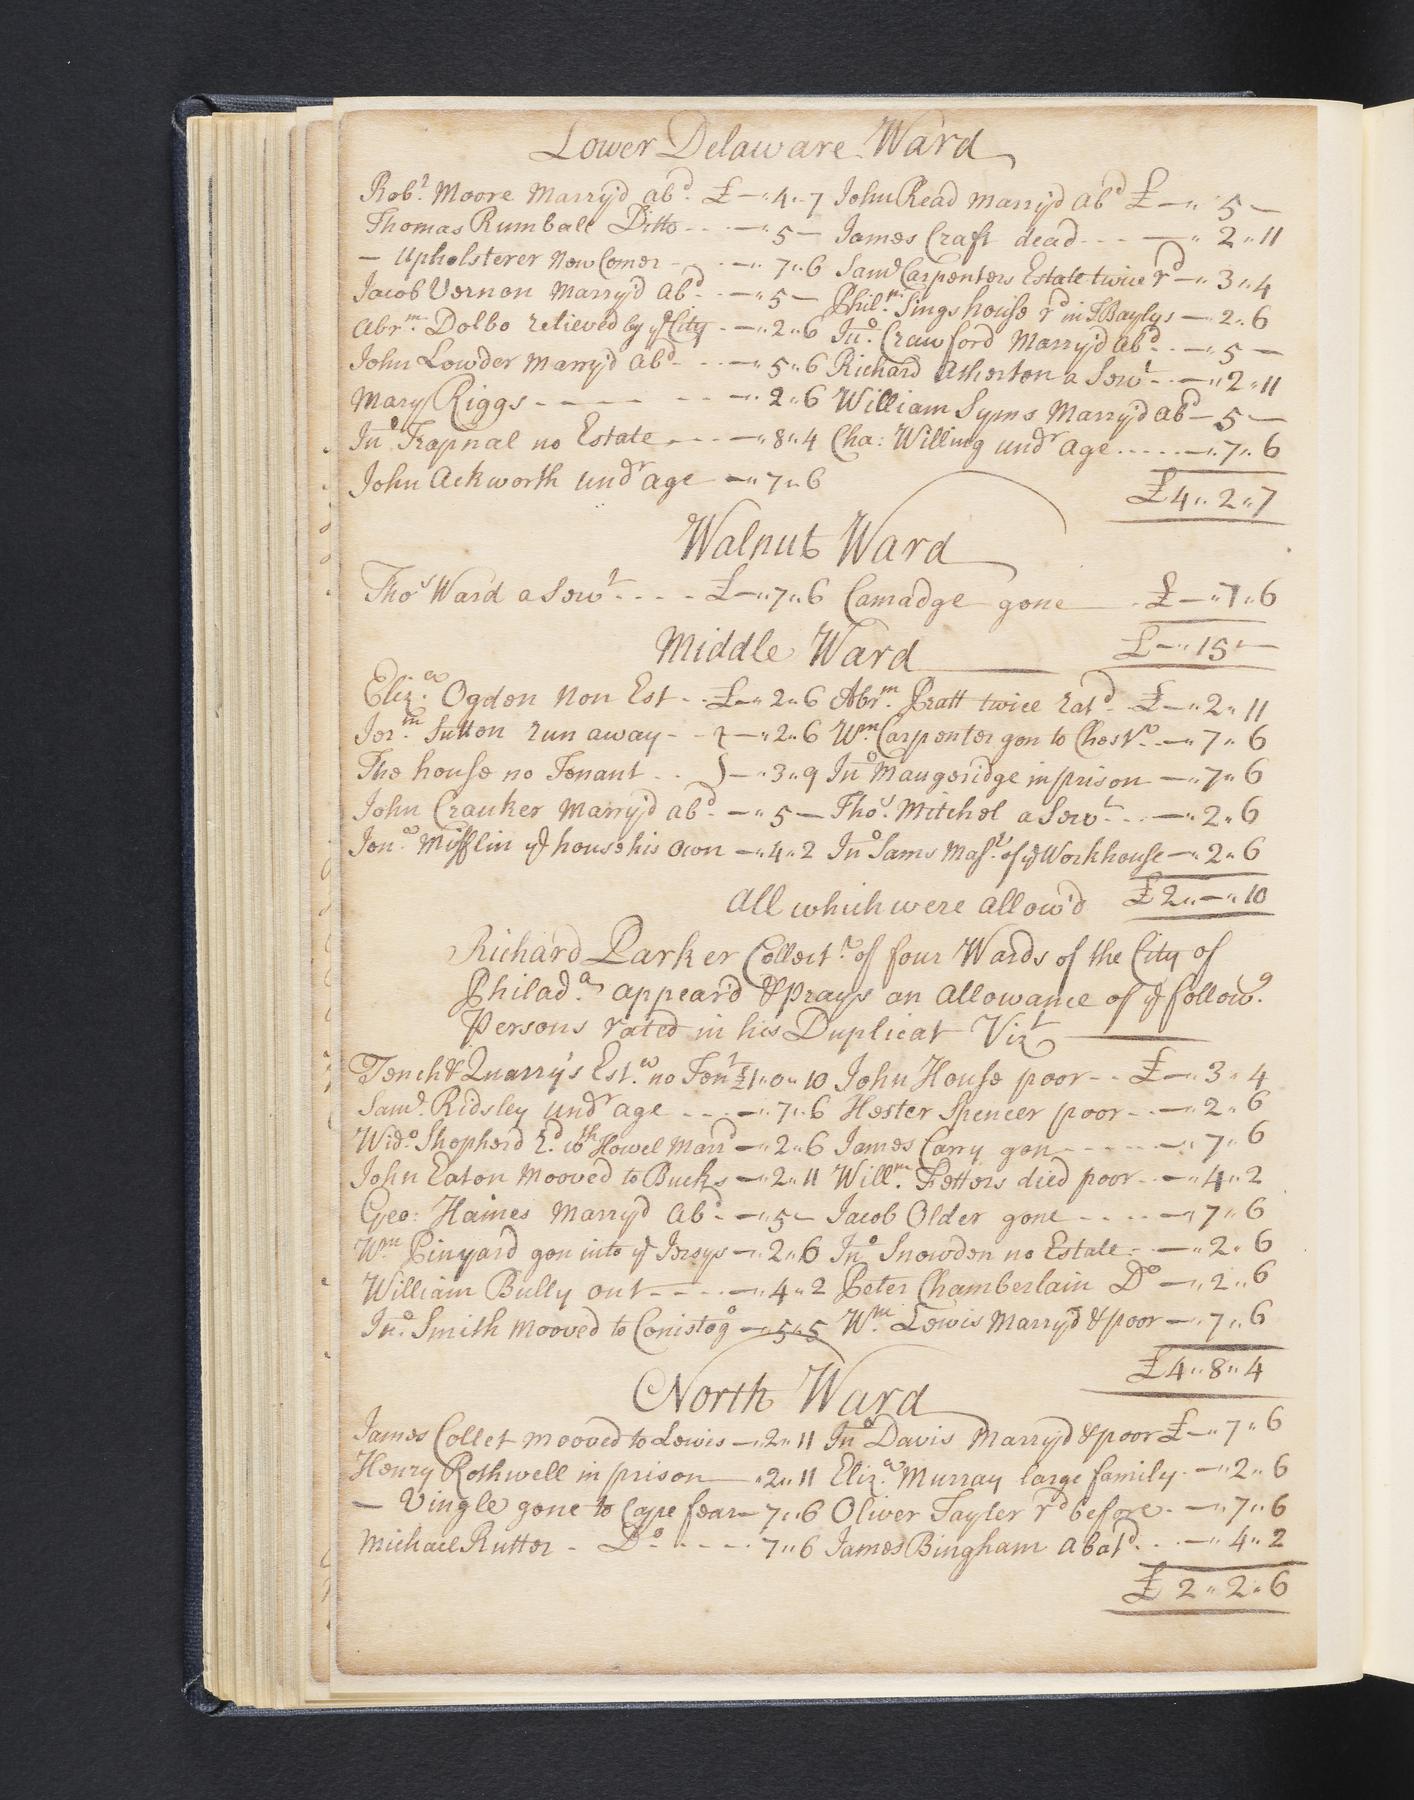 Lower Delaware Ward
Robt. Moore Marry'd abd. £ — „ 4 „ 7 John Read marry'd abd £ — „ 5 —
Thomas Rumball Ditto - - - — „ 5 — James Craft dead - - - — „ 2 „ 11
— Upholsterer New Comer - - — „ 7 „ 6 Saml Carpenters Estate twice rd — „ 3 „ 4
Jacob Vernon Marry'd abd - - — „ 5 — Philm. Sings house rd in TBaylys — „ 2 „ 6
Abrm. Dolbo relieved by ye City - — „ 2 „ 6 Jno. Crawford Marry'd abd. - — „ 5 —
John Lowder Marry'd abd - - — „ 5 „ 6 Richard Atherton a Servt - - — „ 2 „ 11
Mary Riggs - - - - - - — „ 2 „ 6 William Syms Marry'd abd — 5 —
Jno Trapnal no Estate - - - — „ 8 „ 4 Cha: Willing undr age - - - - — „ 7 „ 6
John Ackworth undr age — „ 7 „ 6 £4 „ 2 „ 7
Walnut Ward
Thos Ward a Servt - - - - £ — „ 7 „ 6 Camadge gone £ — „ 7 „ 6
Middle Ward £ — „ 15 „ —
Eliza. Ogdon Non Est - - £ — „ 2 „ 6 Abrm. Pratt twice ratd - £ — „ 2 „ 11
Jerm. Sutton run away - - } — „ 2 „ 6 Wm Carpenter gon to Chestr. - — „ 7 „ 6
The house no Tenant - - } — „ 3 „ 9 Jno Maugeridge in prison — „ 7 „ 6
John Crauker Marry'd abd - — „ 5 — Thos. Mitchel a Servt - - — „ 2 „ 6
Jona. Mifflin ye house his own — „ 4 „ 2 Jno Sams Mastr. of ye Workhouse — „ 2 „ 6
All which were allow'd £2 „ — „ 10
Richard Parker Collectr. of four Wards of the City of
Philada. appear'd & prays an allowance of ye follow.g
Persons rated in his Duplicat Vizt
Tench & Quarry's Est.s no Tent £1 „ 0 „ 10 John House poor - - £ — „ 3 „ 4
Saml. Ridsley undr age - - - — „ 7 „ 6 Hester Spencer poor - - — „ 2 „ 6
Wido. Shepherd rd. wth Howel Marrd — „ 2 „ 6 James Carry gon - - - - - — „ 7 „ 6
John Eaton Mooved to Bucks — „ 2 „ 11 Willm. Fetters died poor - - — „ 4 „ 2
Geo: Haines Marry'd abd - — „ 5 — Jacob Older gone - - - - — „ 7 „ 6
Wm Pinyard gon into ye Jersys — „ 2 „ 6 Jno Snowdon no Estate - - — „ 2 „ 6
William Bully out - - - - — „ 4 „ 2 Peter Chamberlain Do — „ 2 „ 6
Jno. Smith Mooved to Conistogo — „ 5 „ 5 Wm. Lewis Marry'd & poor — „ 7 „ 6
£4 „ 8 „ 4
North Ward
James Collet mooved to Lewis — „ 2 „ 11 Jno Davis Marry'd & poor £ — „ 7 „ 6
Henry Rothwell in prison — „ 2 „ 11 Eliza. Murray large family - — „ 2 „ 6
— Vingle gone to Cape fear — 7 „ 6 Oliver Tayler rd before - — „ 7 „ 6
Michael Rutter - Do - - - - 7 „ 6 James Bingham abatd. - - — „ 4 „ 2
£ 2 „ 2 „ 6